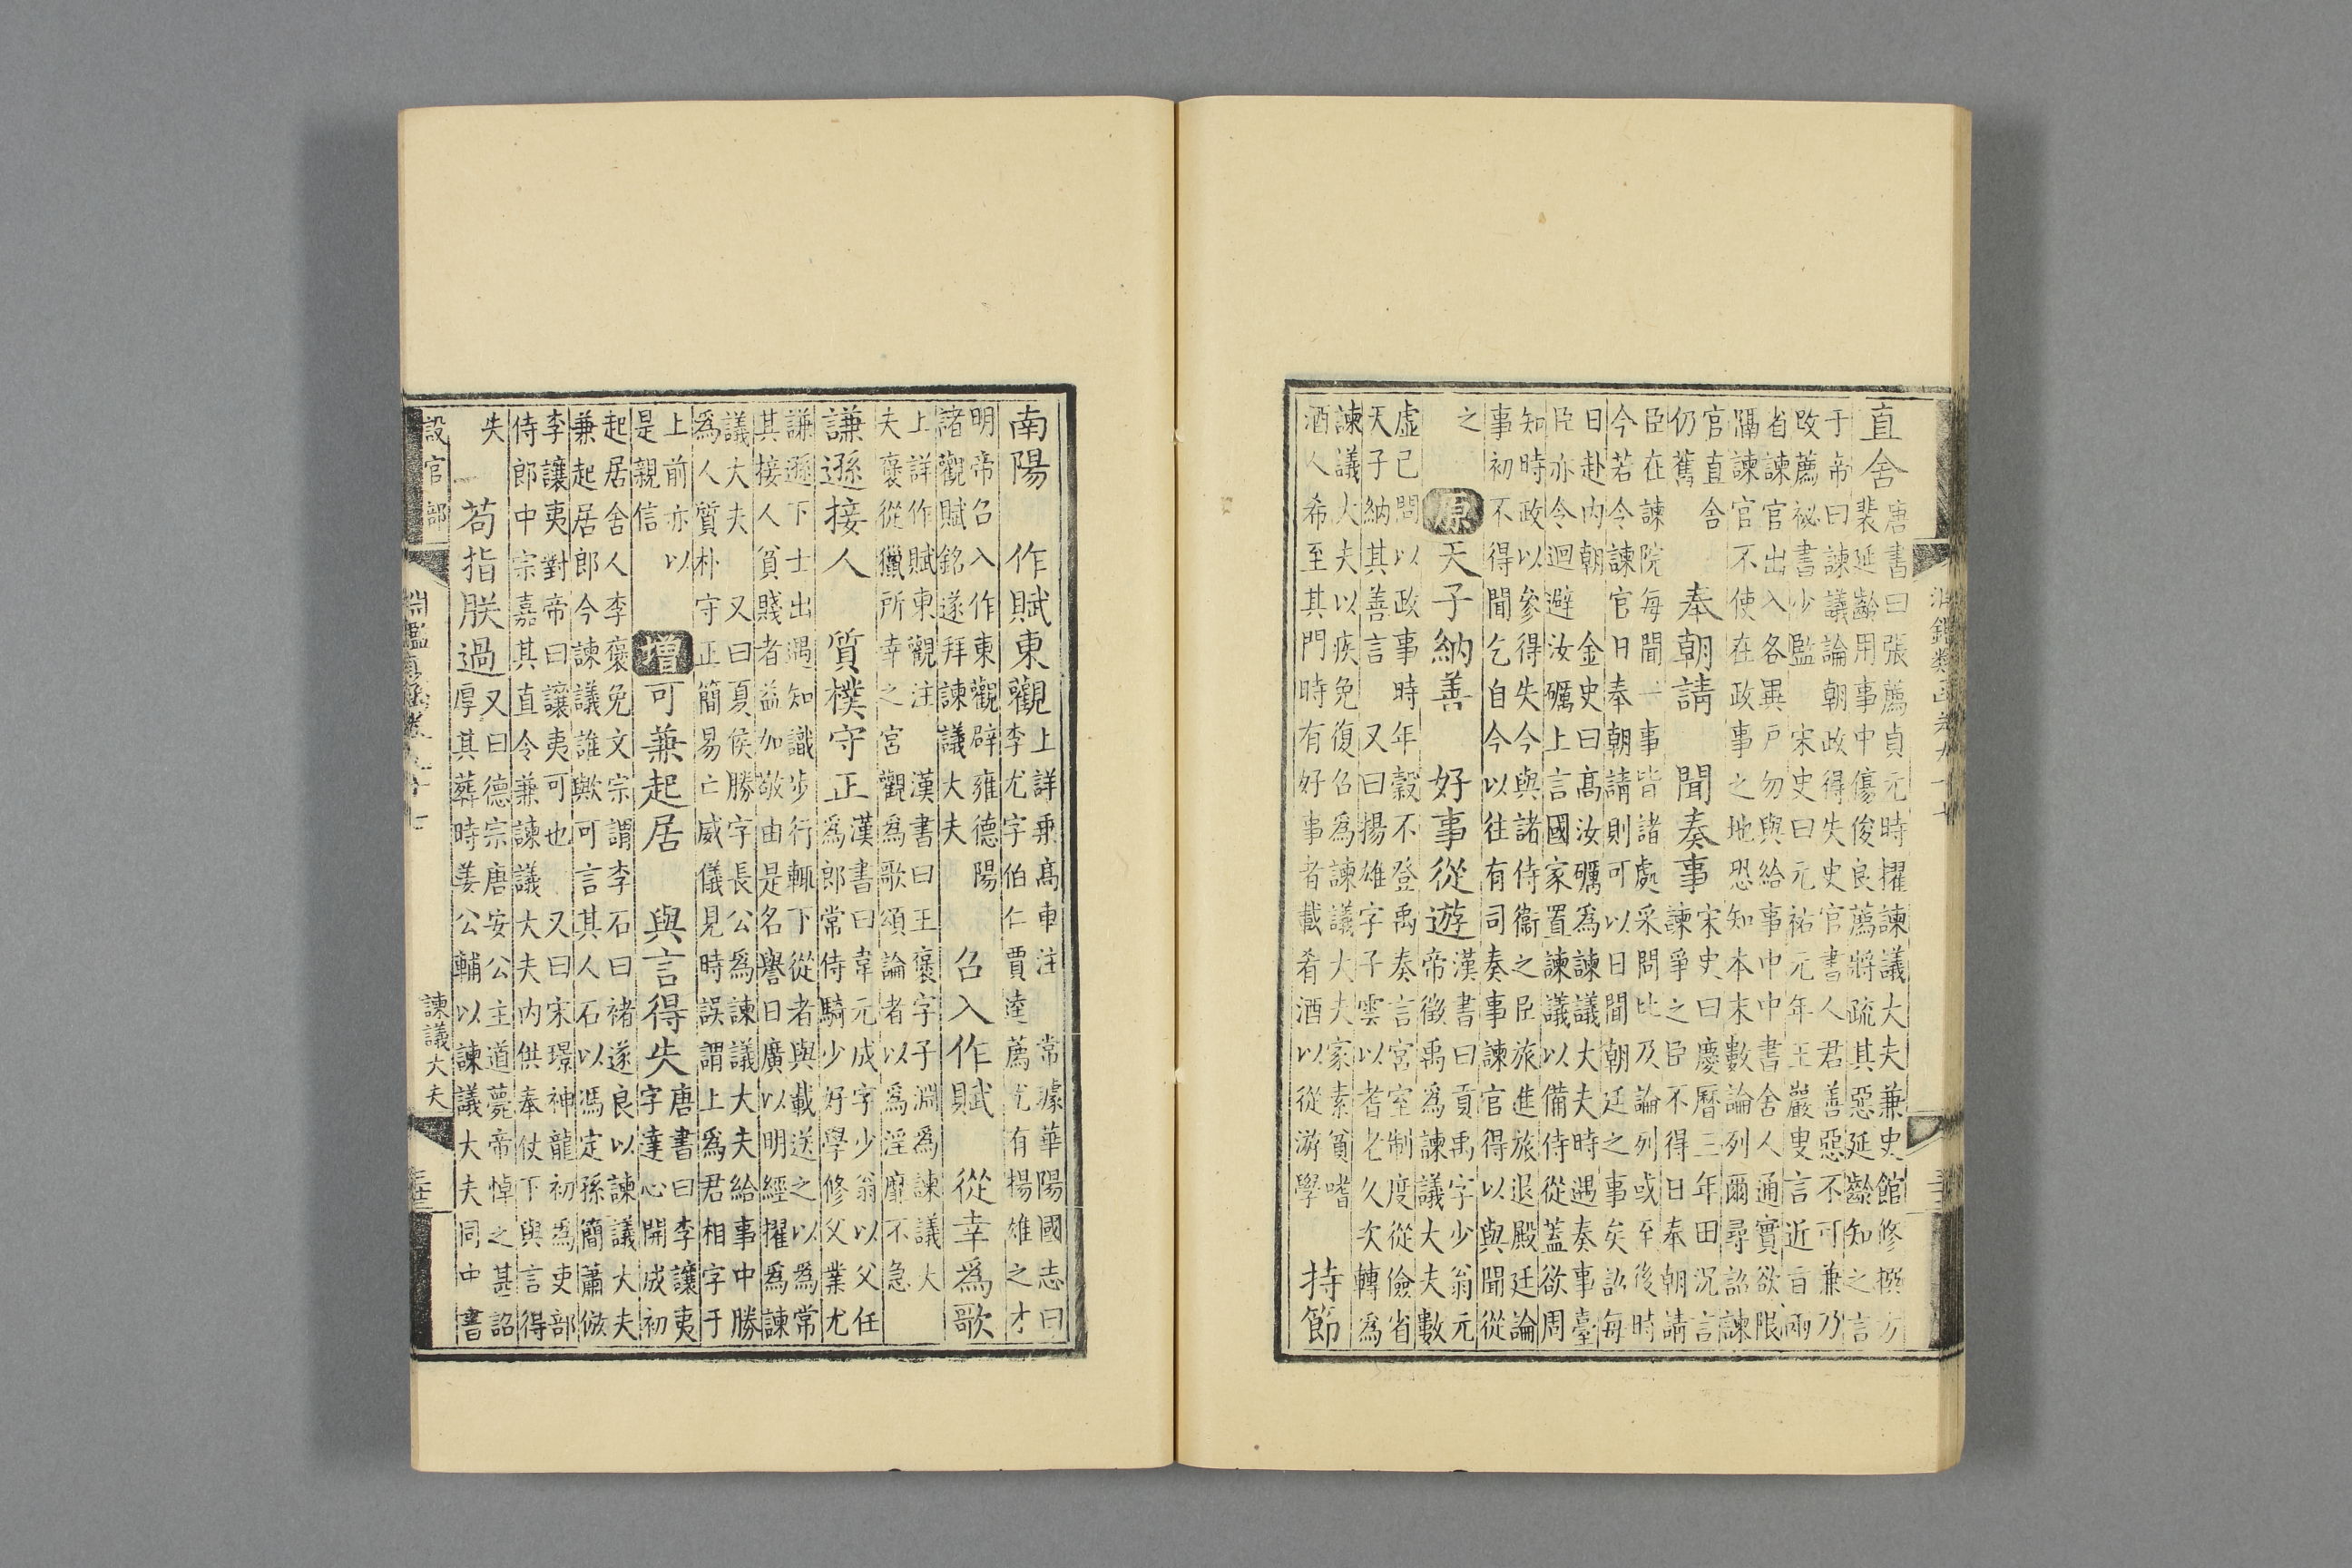 直舍
唐書曰張薦貞元時擢諫議大夫兼史館修撰方
裴延齡用事中傷俊良薦將疏其惡延齡知之言
于帝曰諫議論朝政得失史官書人君善惡不可兼乃
改薦祕書少監 宋史曰元祐元年王巖叟言近旨兩
省諫官出入各異戶勿與給事中中書舍人通實欲限
隔諫官不使在政事之地恐知本末數論列爾尋詔諫
官直舍
仍舊
奉朝請 聞奏事
宋史曰慶曆三年田況言
諫爭之臣不得日奉朝請
臣在諫院每聞一事皆諸處采問比及論列或至後時
今若令諫官日奉朝請則可以日聞朝廷之事矣詔每
日赴內朝 金史曰高汝礪爲諫議大夫時遇奏事臺
臣亦令迴避汝礪上言國家置諫議以備侍從蓋欲周
知時政以參得失今與諸侍衞之臣旅進旅退殿廷論
事初不得聞乞自今以往有司奏事諫官得以與聞從
之
原 天子納善 好事從遊
漢書曰貢禹字少翁元
帝徵禹爲諫議大夫數
虛己問以政事時年穀不登禹奏言宮室制度從儉省
天子納其善言 又曰揚雄字子雲以耆老久次轉爲
諫議大夫以疾免復召爲諫議大夫家素貧嗜
酒人希至其門時有好事者載肴酒以從游學
持節
南陽 作賦東觀
上詳乘高車注 常璩華陽國志曰
李尤字伯仁賈逵薦尤有揚雄之才
明帝召入作東觀辟雍德陽
諸觀賦銘遂拜諫議大夫
召入作賦 從幸爲歌
上詳作賦東觀注 漢書曰王襃字子淵爲諫議大
夫襃從獵所幸之宮觀爲歌頌論者以爲淫靡不急
謙遜接人 質樸守正
漢書曰韋元成字少翁以父任
爲郎常侍騎少好學修父業尤
謙遜下士出遇知識步行輒下從者與載送之以爲常
其接人貧賤者益加敬由是名譽日廣以明經擢爲諫
議大夫 又曰夏侯勝字長公爲諫議大夫給事中勝
爲人質朴守正簡易亡威儀見時誤謂上爲君相字于
上前亦以
是親信
增 可兼起居 與言得失
唐書曰李讓夷
字達心開成初
起居舍人李襃免文宗謂李石曰褚遂良以諫議大夫
兼起居郎今諫議誰歟可言其人石以馮定孫簡蕭俶
李讓夷對帝曰讓夷可也 又曰宋璟神龍初爲吏部
侍郎中宗嘉其直令兼諫議大夫內供奉仗下與言得
失
苟指朕過
又曰德宗唐安公主道薨帝悼之甚詔
厚其葬時姜公輔以諫議大夫同中書
設官部 諫議大夫